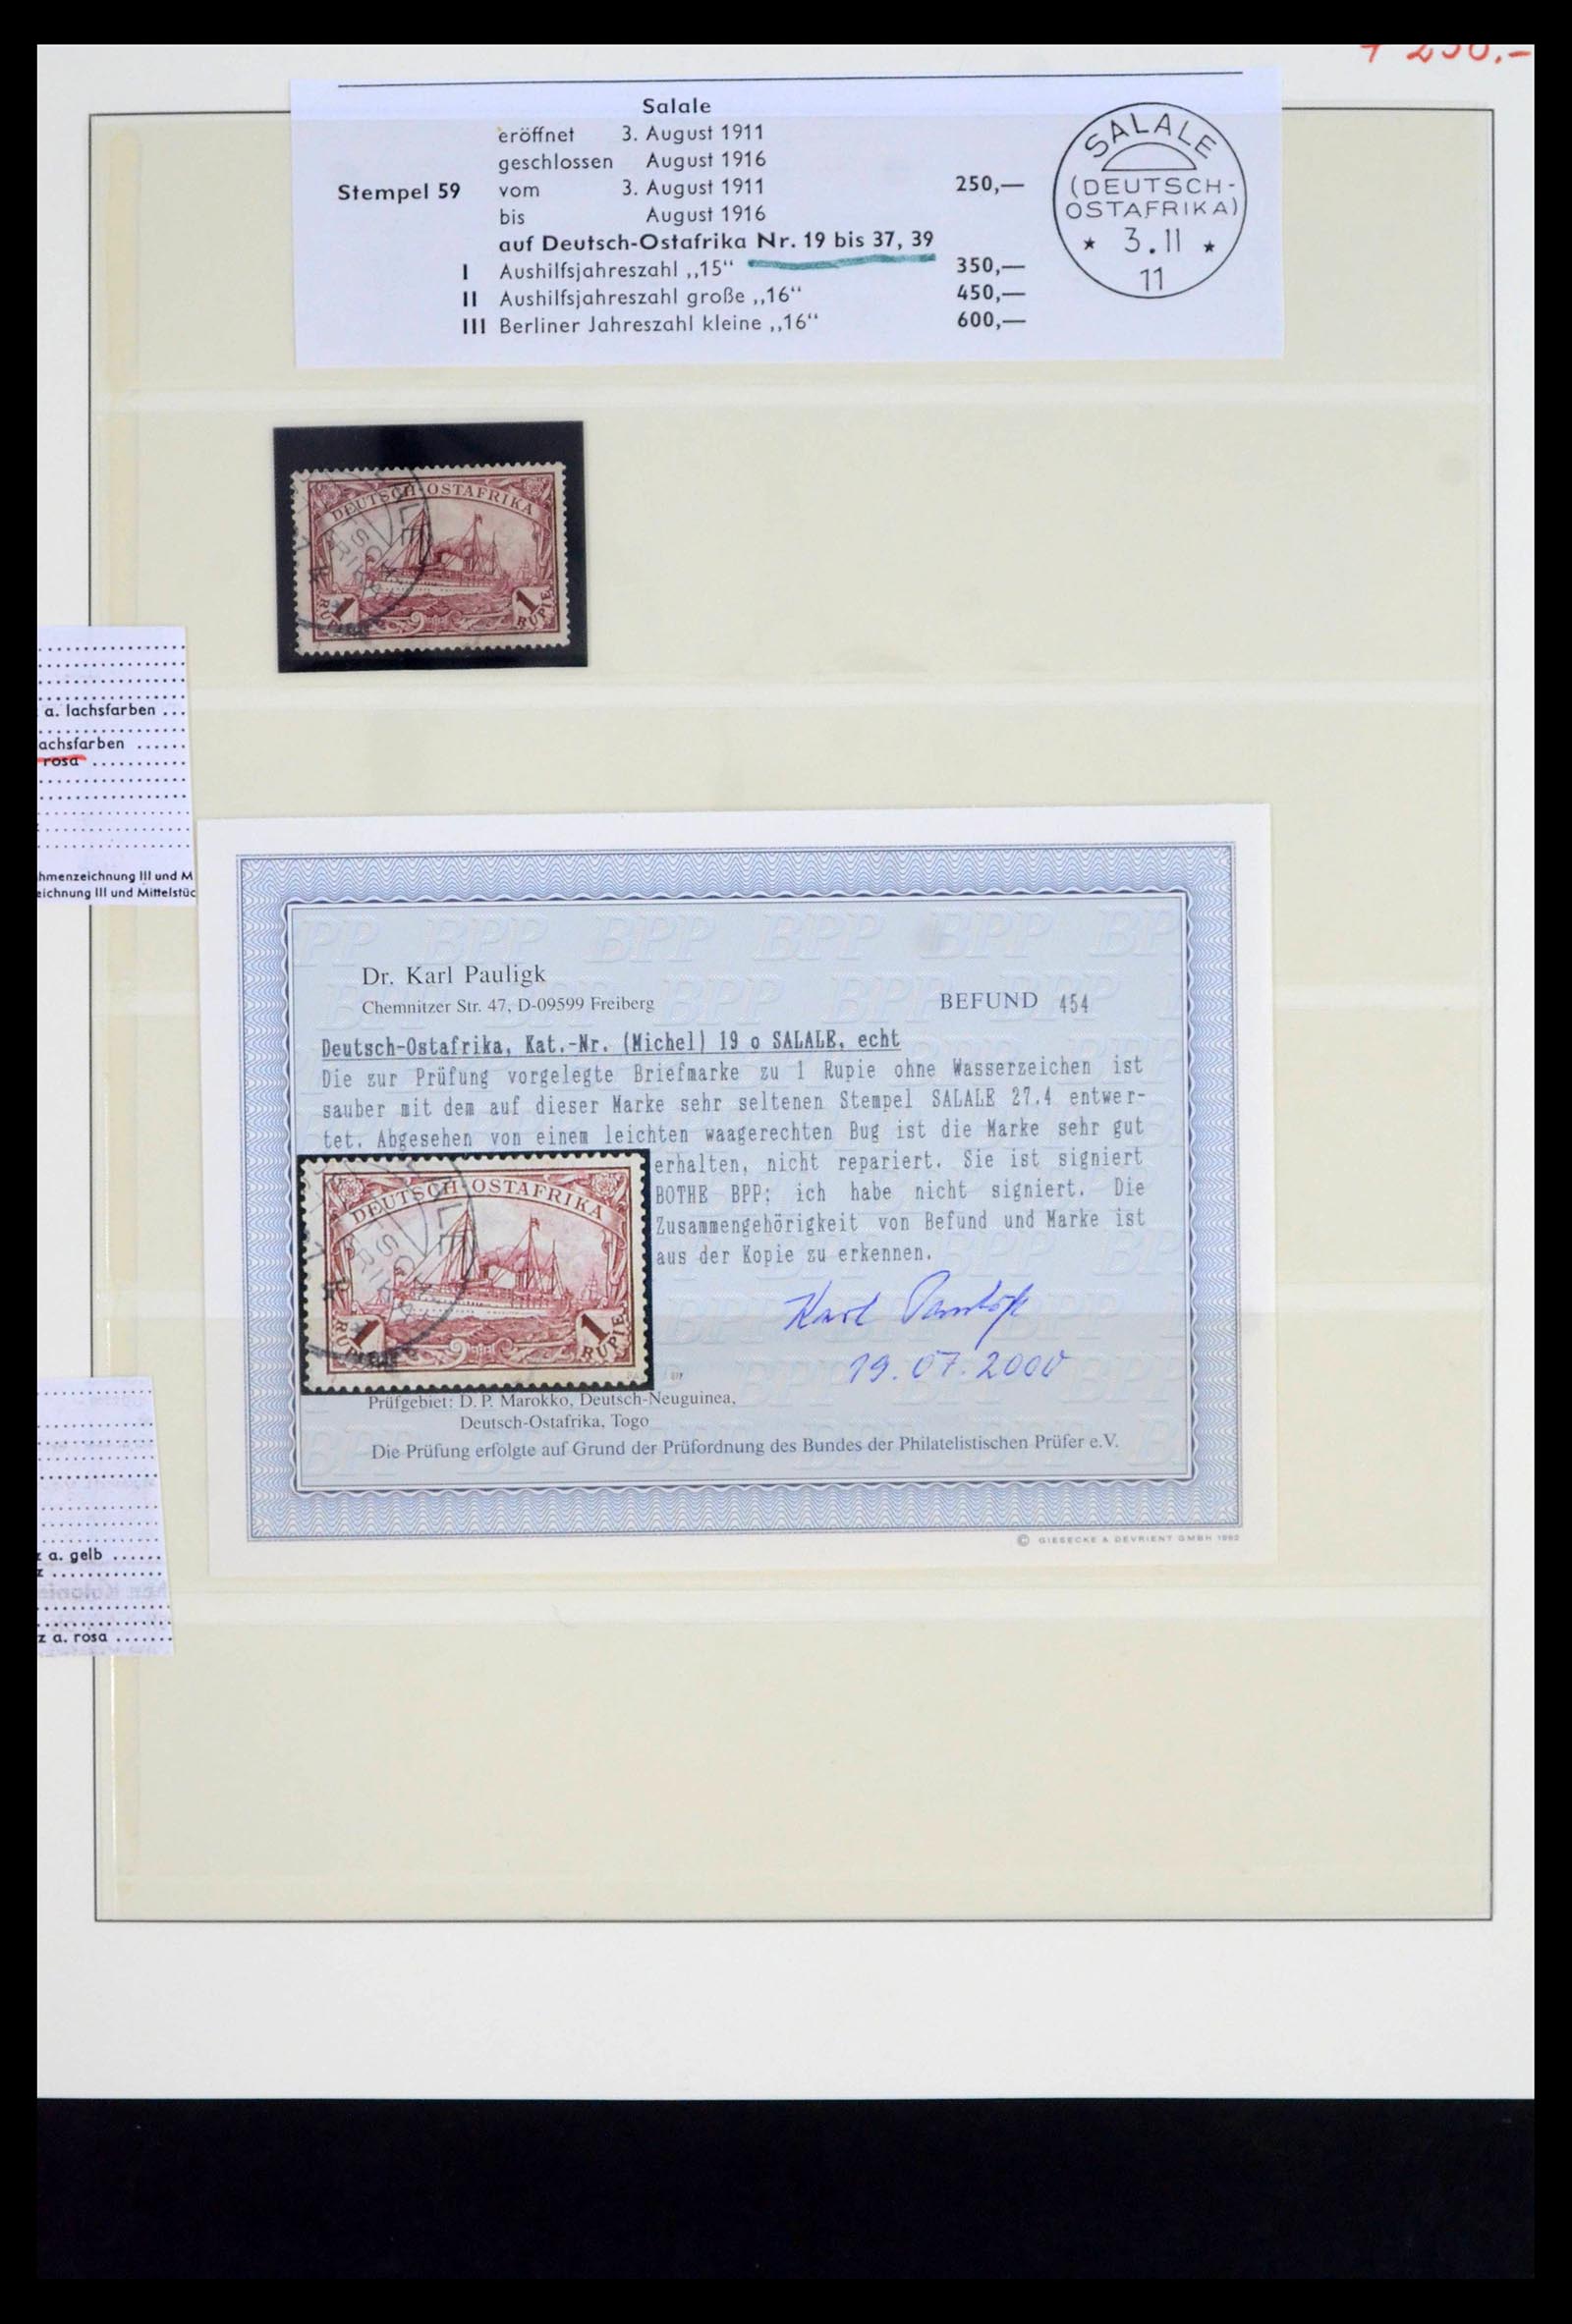 250.–
Salale
eröffnet 3. August 1911
geschlossen August 1916
Stempel 59 vom 3. August 1911 250,—
bis August 1916
auf Deutsch-Ostafrika Nr. 19 bis 37, 39
I Aushilfsjahreszahl „15“ 350,—
II Aushilfsjahreszahl große „16“ 450,—
III Berliner Jahreszahl kleine „16“ 600,—
SALALE
(DEUTSCH-
OSTAFRIKA)
* 3.11 *
11
DEUTSCH-OSTAFRIKA
1 RUPIE 1 RUPIE
a. lachsfarben ...
achsfarben ......
rosa ...........
hmenzeichnung III und M
eichnung III und Mittelstüc
Dr. Karl Pauligk
Chemnitzer Str. 47, D-09599 Freiberg
BEFUND 454
Deutsch-Ostafrika, Kat.-Nr. (Michel) 19 o SALALE, echt
Die zur Prüfung vorgelegte Briefmarke zu 1 Rupie ohne Wasserzeichen ist
sauber mit dem auf dieser Marke sehr seltenen Stempel SALALE 27.4 entwer-
tet. Abgesehen von einem leichten waagerechten Bug ist die Marke sehr gut
erhalten, nicht repariert. Sie ist signiert
BOTHE BPP; ich habe nicht signiert. Die
Zusammengehörigkeit von Befund und Marke ist
aus der Kopie zu erkennen.
DEUTSCH-OSTAFRIKA
1 RUPIE 1 RUPIE
Karl Pauligk
19.07.2000
Prüfgebiet: D. P. Marokko, Deutsch-Neuguinea,
Deutsch-Ostafrika, Togo
Die Prüfung erfolgte auf Grund der Prüfordnung des Bundes der Philatelistischen Prüfer e.V.
© GIESECKE & DEVRIENT GMBH 1992
z a. gelb ......
z ..............
z a. rosa .......